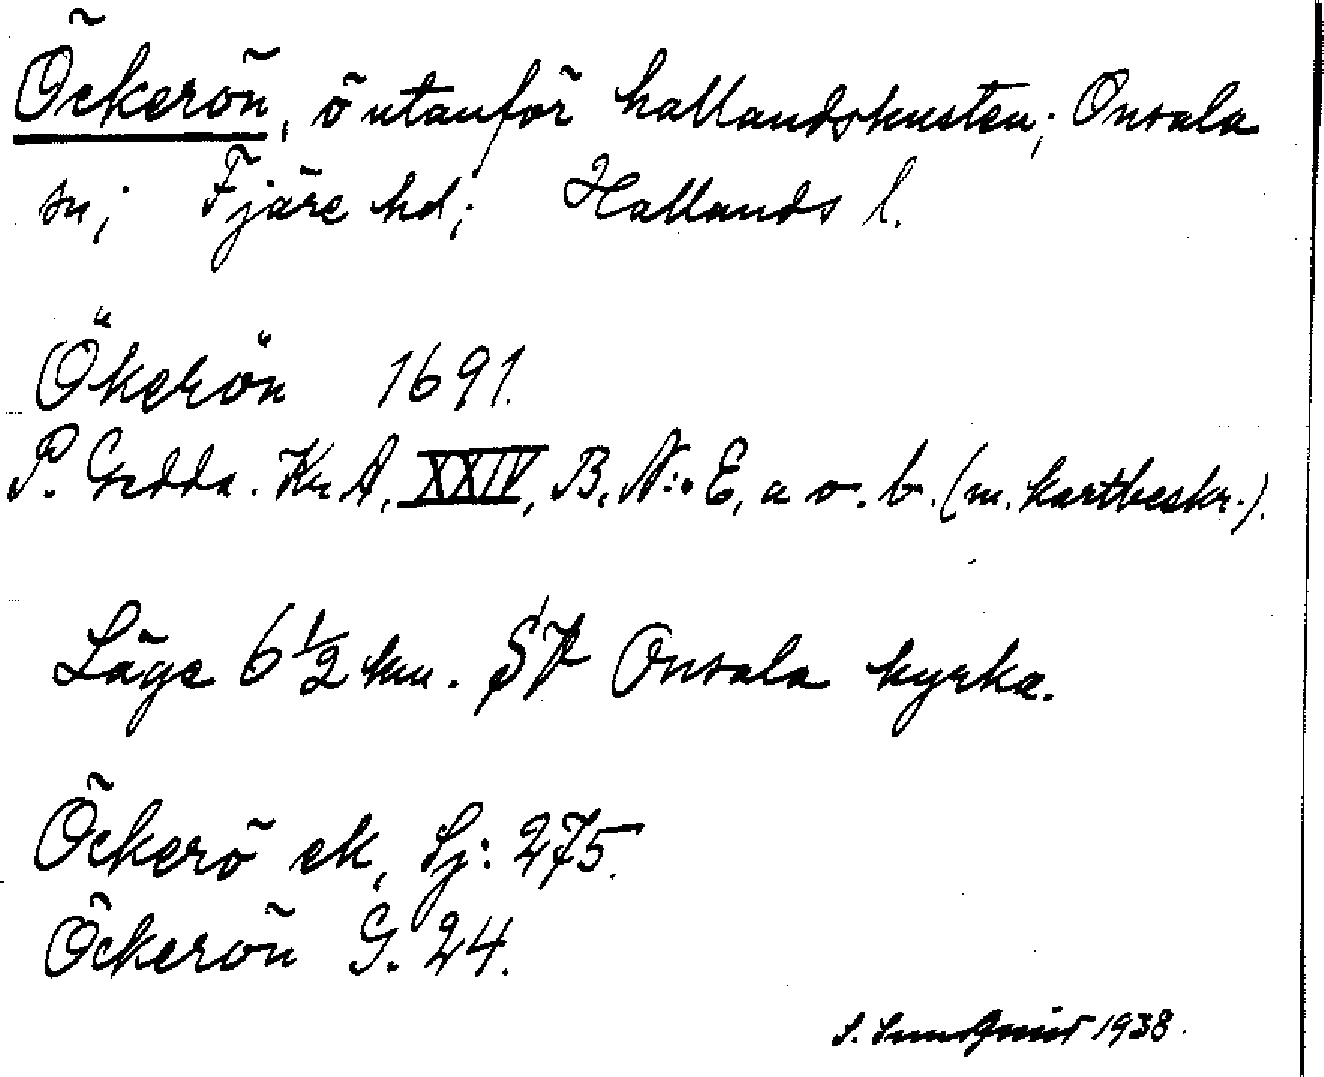 Öckerön, ö utanför hallandskusten; Onsala
sn; Fjäre hd; Hallands l.
Ökerön 1691.
P. Gedda. Kr. A. XXIV, B. N:o E, a o. b. (m. kartbeskr.).
Läge 6 1/2 km. SV Onsala kyrka.
Öckerö ek, Sj: 275.
Öckerön G. 24.
S. Sundquist 1938.